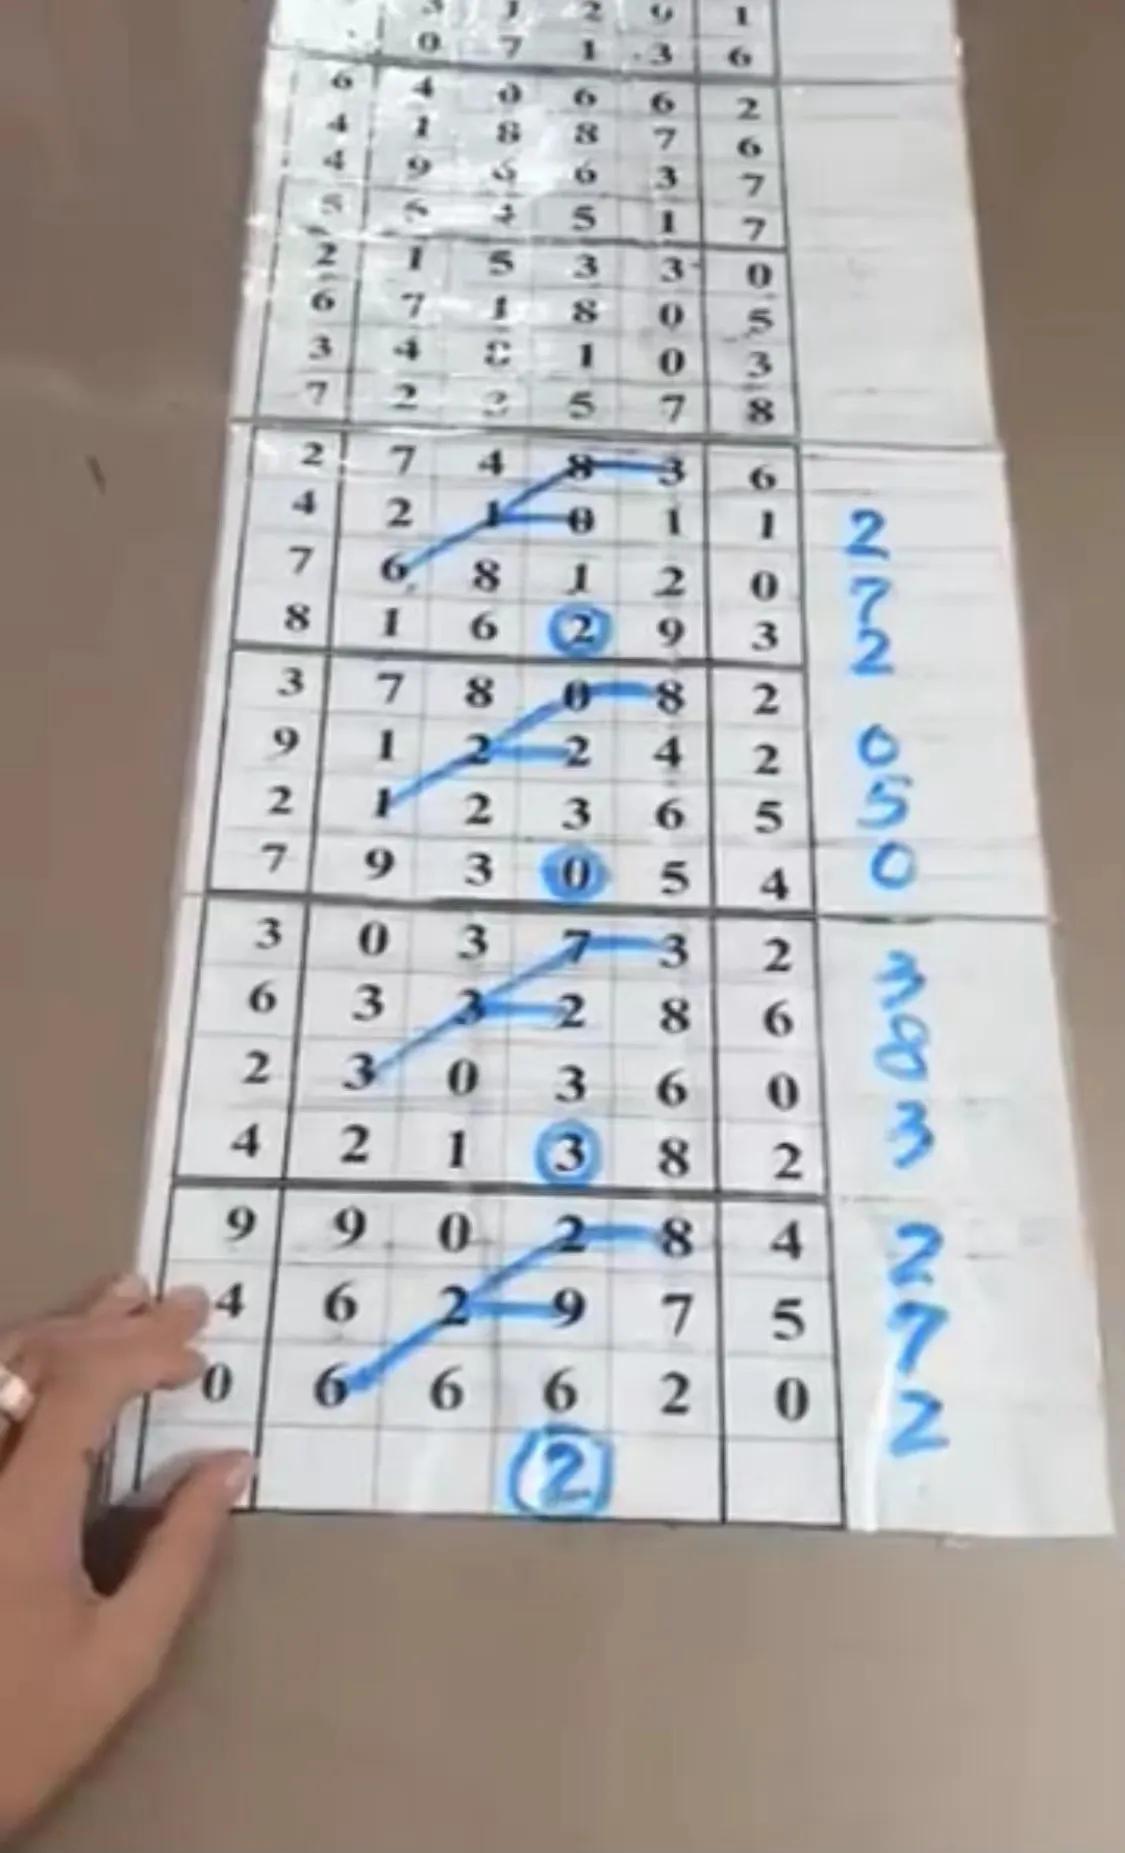 3 1 2 0 1
0 7 1 3 6
6 4 0 6 6 2
4 1 8 8 7 6
4 9 6 6 3 7
5 5 4 5 1 7
2 1 5 3 3 0
6 7 1 8 0 5
3 4 8 1 0 3
7 2 5 7 8
2 7 4 8 3 6
4 2 1 0 1 1 2
7 6 8 1 2 0 7
8 1 6 2 9 3 2
3 7 8 0 8 2
9 1 2 2 4 2 0
2 1 2 3 6 5 5
7 9 3 0 5 4 0
3 0 3 7 3 2 3
6 3 3 2 8 6 8
2 3 0 3 6 0
4 2 1 3 8 2 3
9 9 0 2 8 4 2
4 6 2 9 7 5 7
0 6 6 6 2 0 2
2